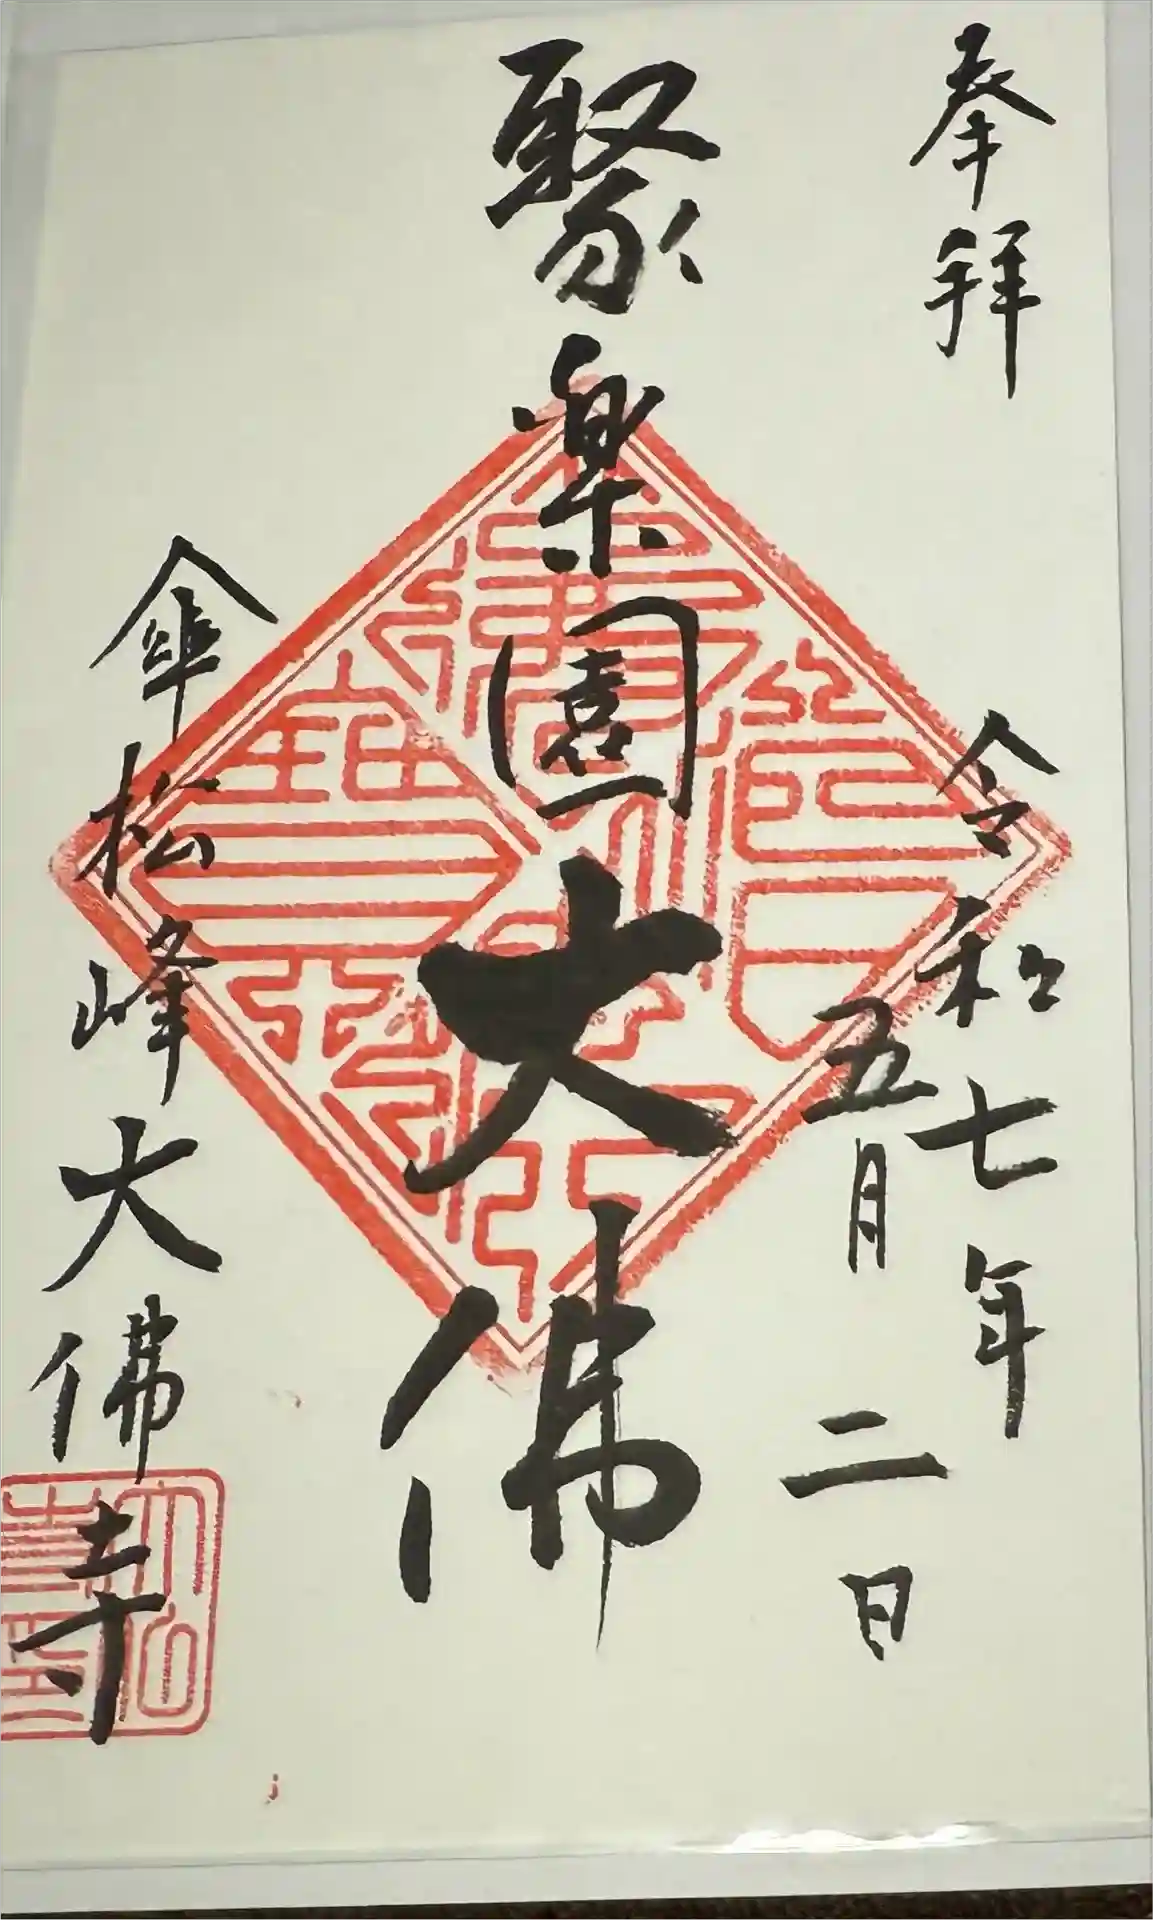 奉拝
令和七年
五月二日
聚楽園大佛
傘松峰大佛寺